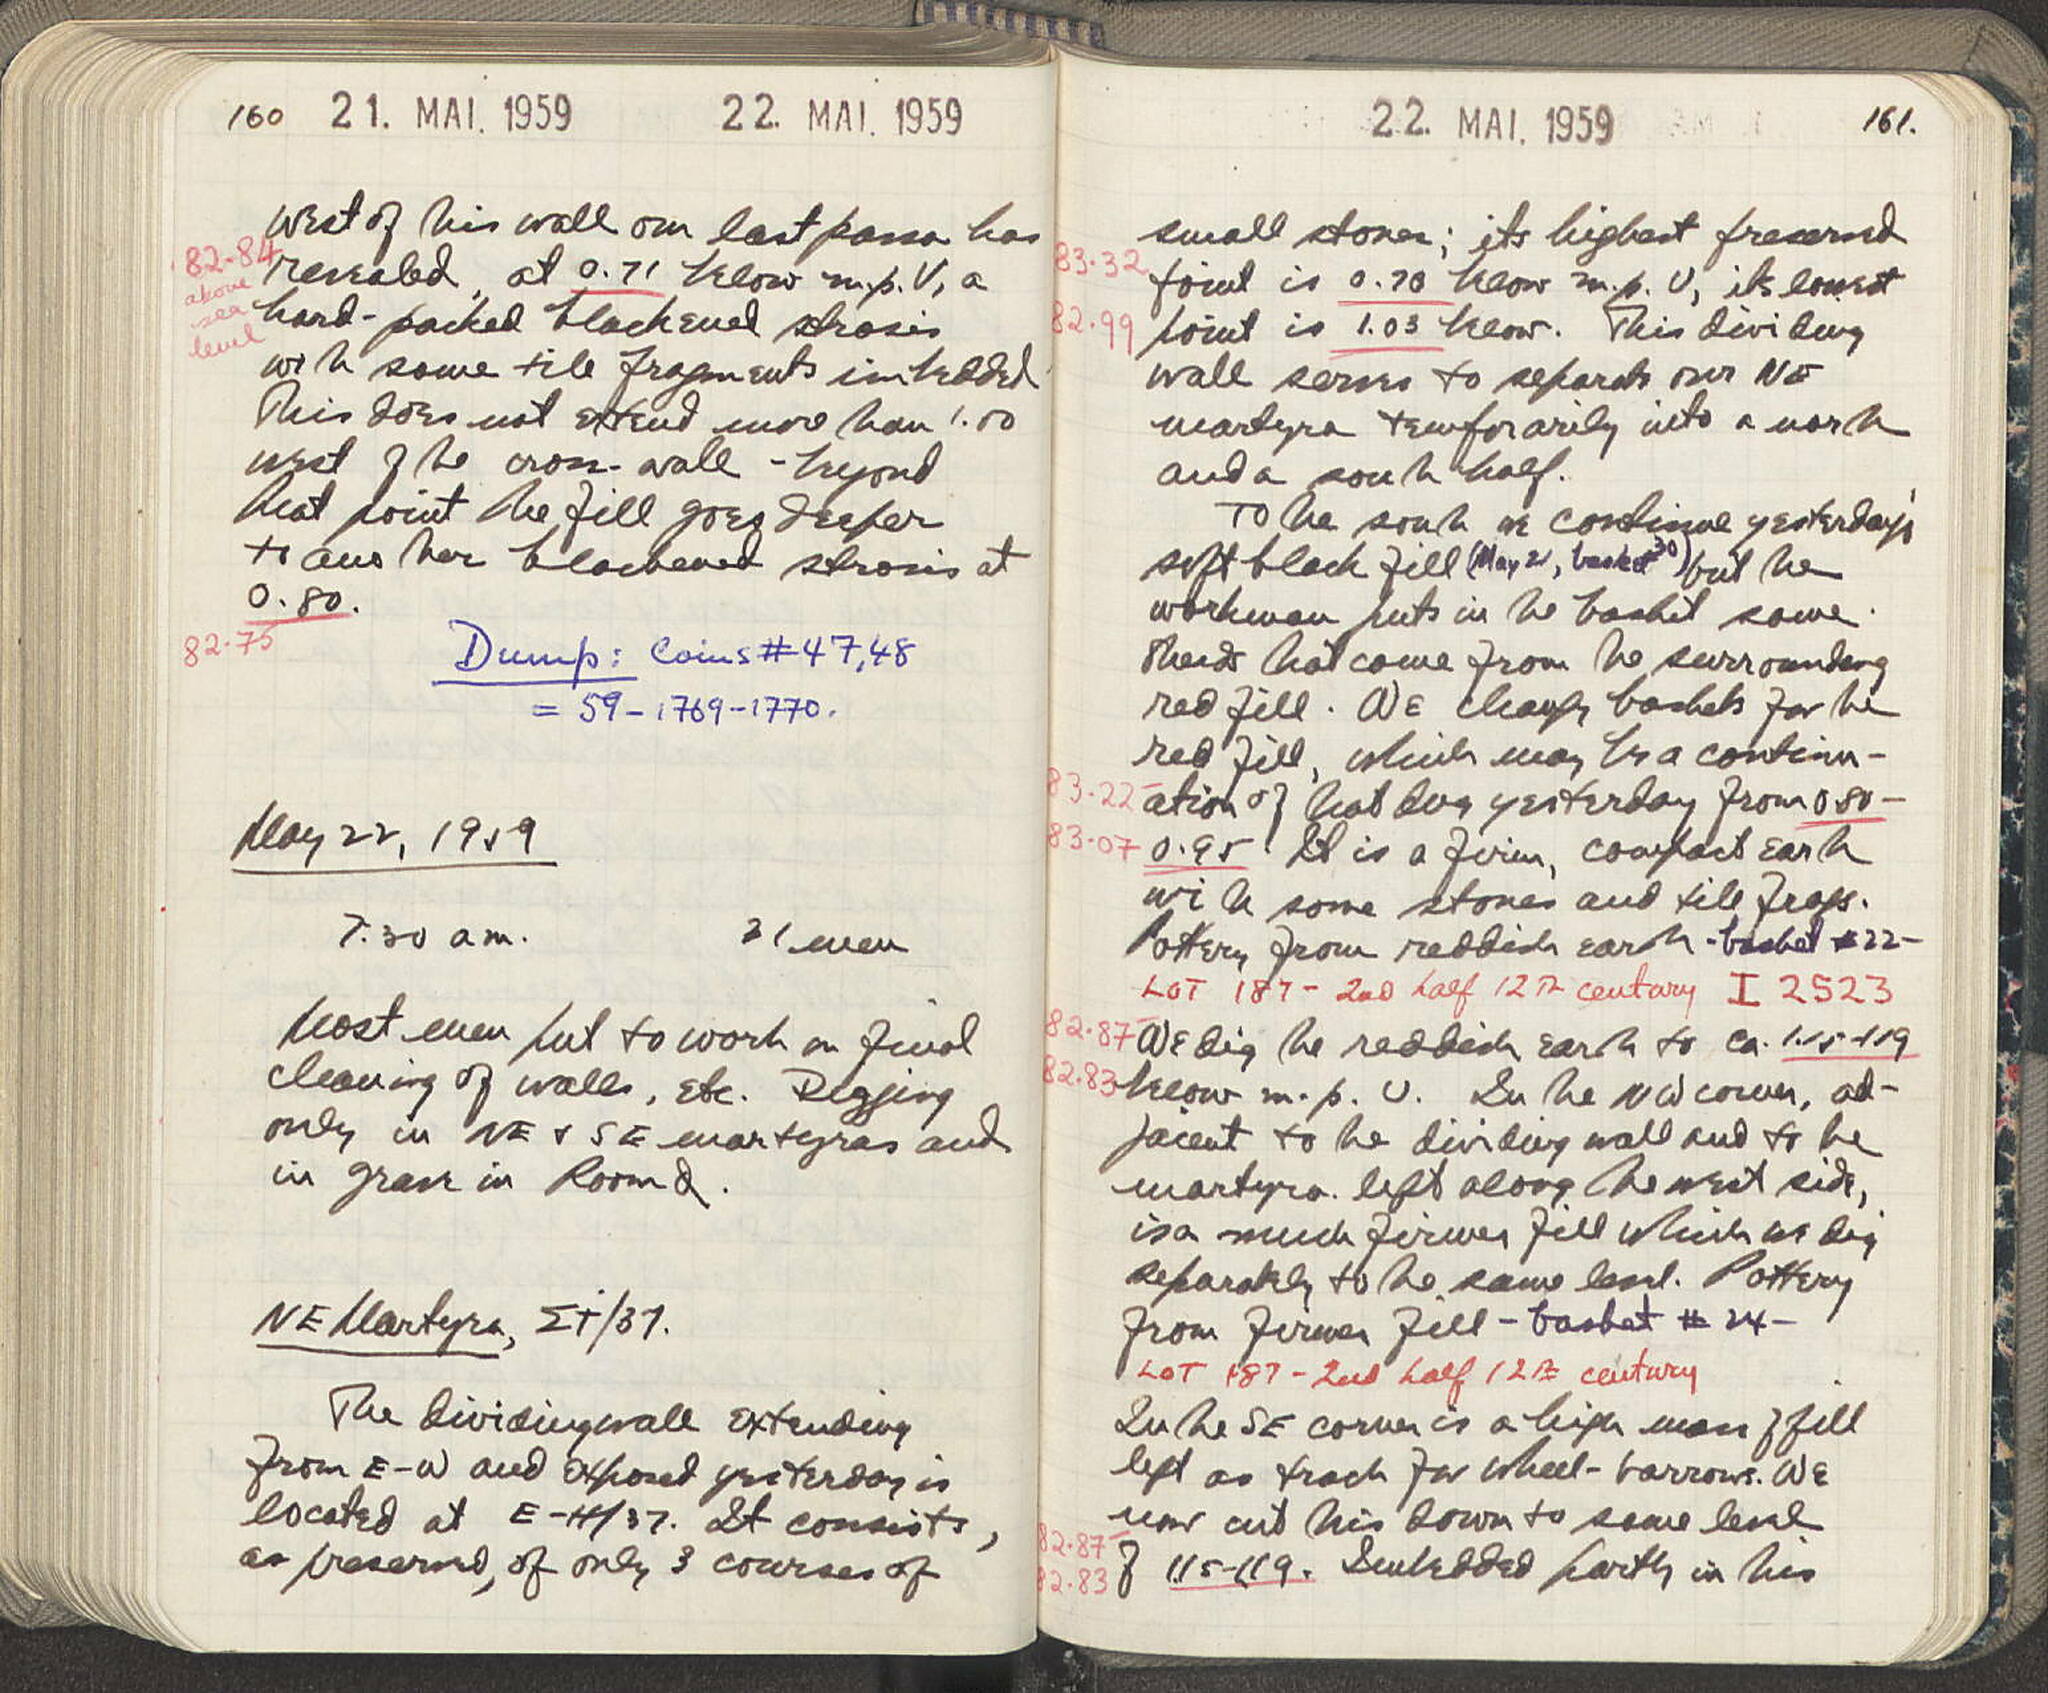 160 21. MAI. 1959 22. MAI. 1959
west of this wall our last passa has
82-84 revealed, at 0.71 below m.p. V, a
above
sea
level
hard-packed blackened strosis
with some tile fragments imbedded
This does not extend more than 1.00
west of the cross-wall - beyond
that point the fill goes deeper
to another blackened strosis at
0.80.
82.75
Dump: Coins # 47,48
= 59-1769-1770.
May 22, 1959
7:30 a.m. 21 men
Most men put to work on final
cleaning of walls, etc. Digging
only in NE & SE martyras and
in grave in Room d.
NE Martyra, ΣΤ/37.
The dividing wall extending
from E-W and exposed yesterday is
located at E-ΣΤ/37. It consists,
as preserved, of only 3 courses of
22. MAI. 1959 161.
small stones; its highest preserved
83.32 point is 0.70 below m.p. V, its lowest
82.99 point is 1.03 below. This dividing
wall serves to separate our NE
martyra temporarily into a north
and a south half.
To the south we continue yesterday's
soft black fill (May 21, basket 30) but the
workman puts in the basket some
sherds that come from the surrounding
red fill. We change baskets for the
red fill, which may be a continu-
83.22- ation of that dug yesterday from 0.80-
83.07 0.95. It is a firm, compact earth
with some stones and tile frags.
Pottery from reddish earth - basket #22-
LOT 187- 2nd half 12th century I 2523
82.87- We dig the reddish earth to ca. 1.15-1.19
82.83 below m.p. V. In the NW corner, ad-
jacent to the dividing wall and to the
martyra left along the west side,
is a much firmer fill which we dig
separately to the same level. Pottery
from firmer fill - basket # 24-
LOT 187- 2nd half 12th century
In the SE corner is a high mass of fill
left as track for wheel-barrows. We
now cut this down to same level
82.87-
82.83 of 1.15-1.19. Imbedded partly in this